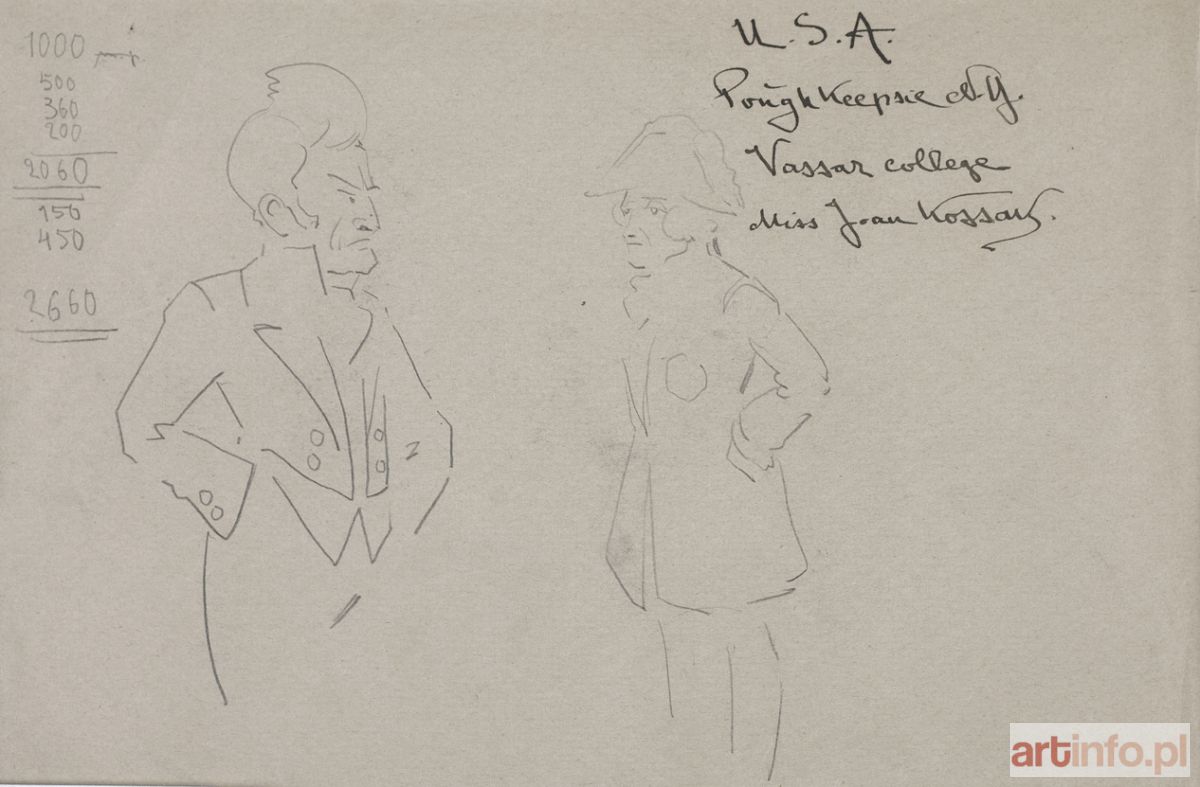 1000
500
360
200
2060
150
450
2660
U.S.A.
Poughkeepsie N.Y.
Vassar college
Miss Joan Kossak.
artinfo.pl